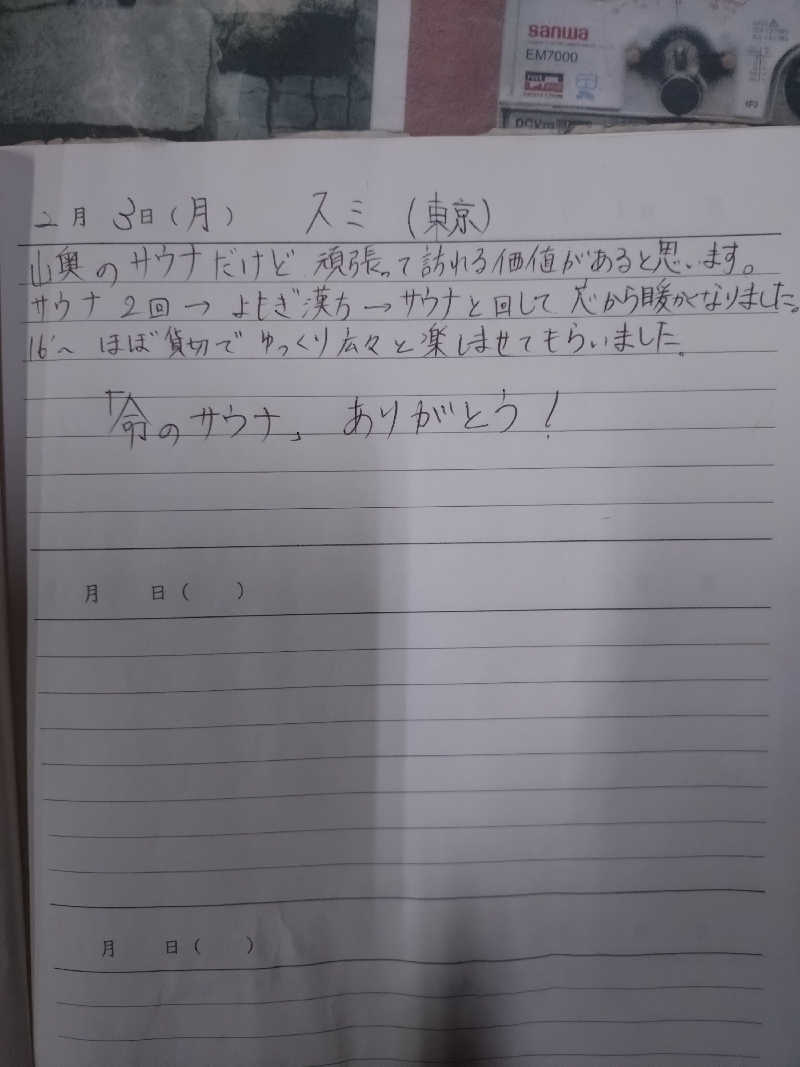 sanwa
EM7000
2月 3日(月) スミ (東京)
山奥のサウナだけど 頑張って訪れる価値があると思います。
サウナ 2回 → よもぎ漢方 → サウナと回して 芯から暖かくなりました。
16〜 ほぼ貸切で ゆっくり広々と楽しませてもらいました。
「命のサウナ」 ありがとう!
月 日( )
月 日( )